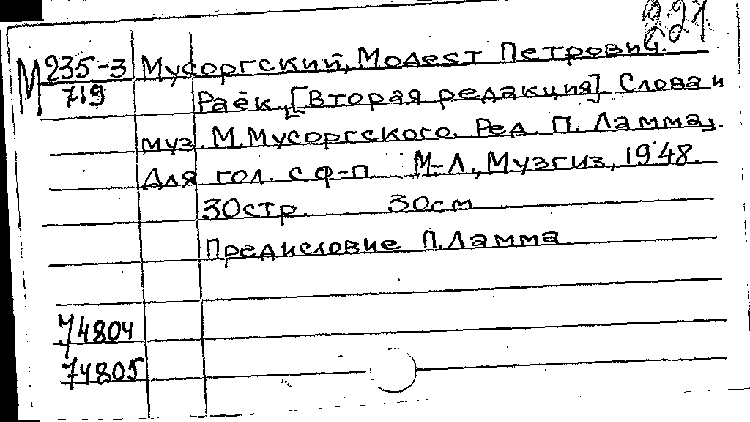 221
М 235-3 Мусоргский, Модест Петрович.
719 Раёк, [Вторая редакция] Слова и
муз. М. Мусоргского. Ред. П. Ламма,
для гол. с ф-п М-Л, Музгиз, 1948.
30 стр. 30 см
Предисловие П. Ламма
74804
74805